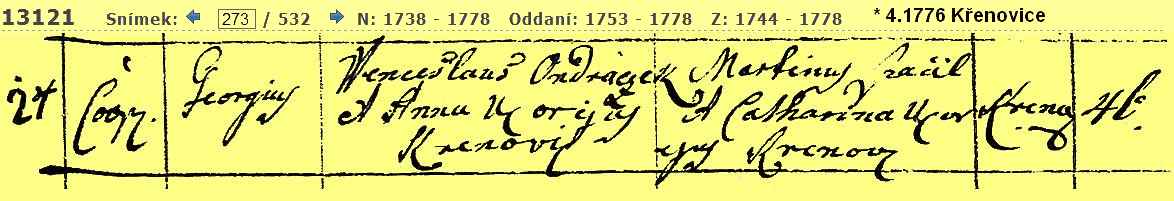 13121 Snímek: 273 / 532 N: 1738 - 1778 Oddaní: 1753 - 1778 Z: 1744 - 1778 * 4.1776 Křenovice
24
Georgius
Wenceslaus Ondráczek
A Anna Uxor ejus
Krenovic
Martinus
A Catharina Uxor
ejus Krenov
Krenov